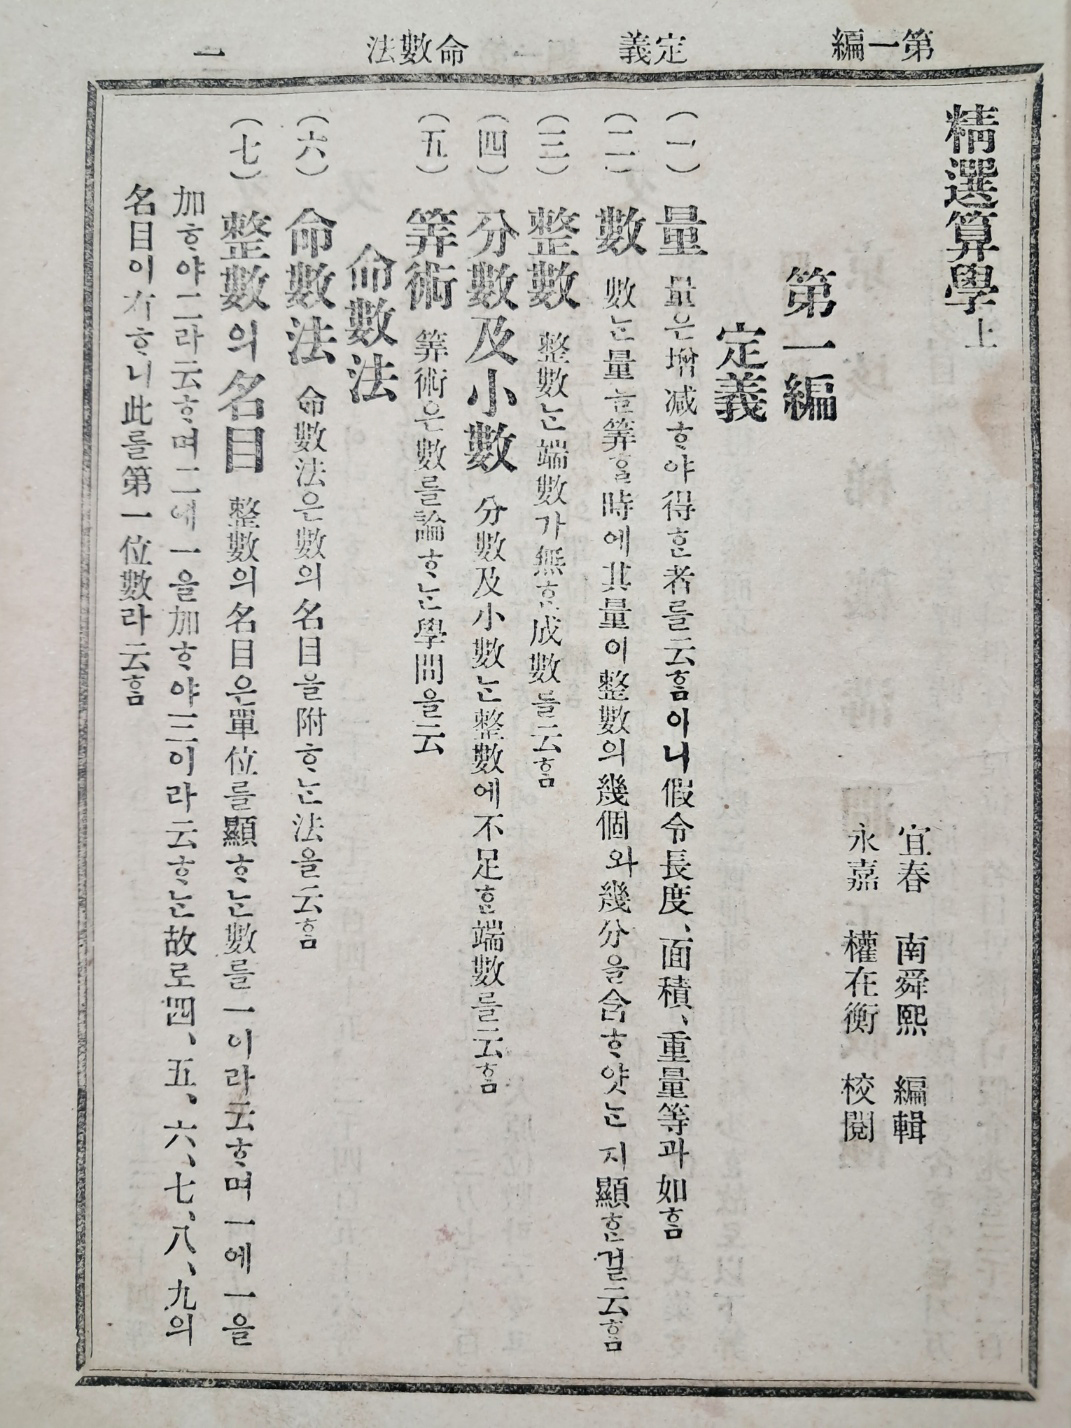 第一編 定義 命數法 一
精選算學上
宜春 南舜熙 編輯
永嘉 權在衡 校閱
第一編
定義
(一) 量 量은增减ᄒᆞ야得ᄒᆞᆫ者를云홈아니假令長度、面積、重量等과如홈
(二) 數 數ᄂᆞᆫ量늘筭ᄒᆞᆯ時에其量이整數의幾個와幾分을含ᄒᆞ얏ᄂᆞᆫ지顯ᄒᆞᆫ걸云홈
(三) 整數 整數ᄂᆞᆫ端數가無ᄒᆞᆫ成數들云홈
(四) 分數及小數 分數及小數ᄂᆞᆫ整數에不足ᄒᆞᆫ端數를云홈
(五) 筭術 筭術은數를論ᄒᆞᄂᆞᆫ學問을云
命數法
(六) 命數法 命數法은數의名目을附ᄒᆞᄂᆞᆫ法을云홈
(七) 整數의名目 整數의名目은單位를顯ᄒᆞᄂᆞᆫ數를一이라云ᄒᆞ며一에一을
加ᄒᆞ야二라云ᄒᆞ며二에一을加ᄒᆞ야三이라云ᄒᆞᄂᆞᆫ故로四、五、六、七、八、九의
名目이有ᄒᆞ니此를第一位數라云홈